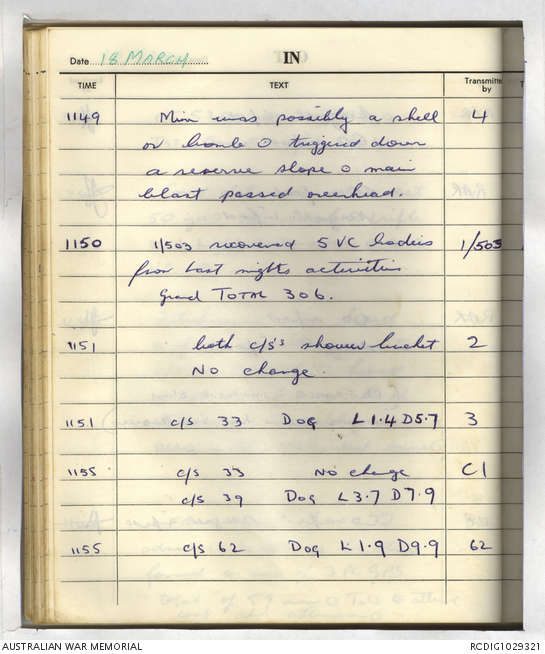 Date 18 MARCH IN
TIME TEXT Transmitted by
1149 Mine was possibly a shell 4
or bomb O triggered down
a reserve slope O main
blast passed overhead.
1150 1/503 recovered 5 VC bodies 1/503
from last nights activities
Grand TOTAL 306.
1151 both c/s's shower bucket 2
No change.
1151 c/s 33 Dog L1.4 D5.7 3
1155 c/s 33 No change C1
c/s 39 Dog L3.7 D7.9
1155 c/s 62 Dog L1.9 D9.9 62
AUSTRALIAN WAR MEMORIAL RCDIG1029321